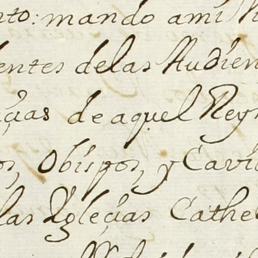 nto: mando ami Vi
entes delas Audien
cias de aquel Rey
os, Obispos, y Cavi
las Yglecias Cathe